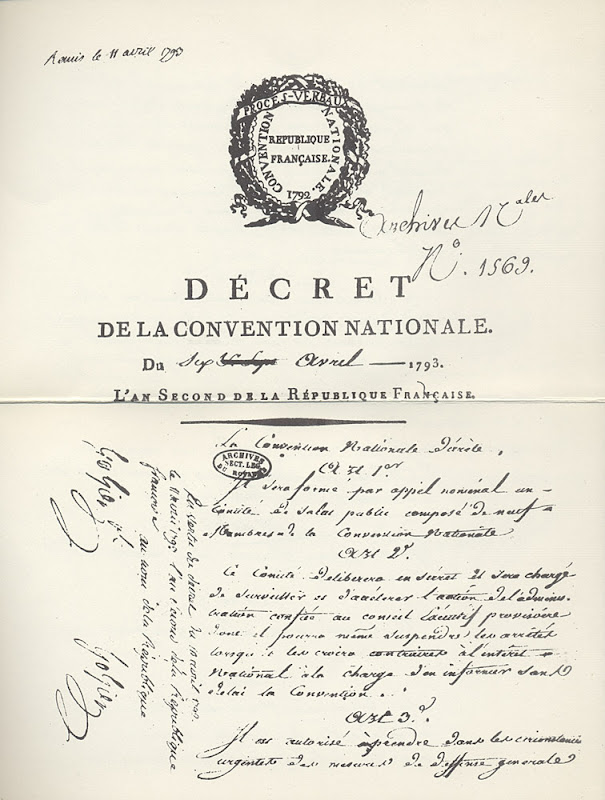 Remis le 11 avril 1793
PROCÈS-VERBAUX
CONVENTION NATIONALE.
REPUBLIQUE
FRANÇAISE.
1792
Archives N.ales
N.º 1569.
DÉCRET
DE LA CONVENTION NATIONALE.
Du Six avril — 1793.
L'AN SECOND DE LA RÉPUBLIQUE FRANÇAISE.
La Convention Nationale décrète.
ARCHIVES
SECT. LEG.
DU ROYAUME
Art 1.er
Il sera formé par appel nominal un
Comité de salut public composé de neuf
Membres de la Convention Nationale
Art 2.
Ce Comité deliberera en secret il sera chargé
de surveiller et d'accelerer l'action de l'adminis-
tration confiée au conseil executif provisoire
dont il pourra même suspendre les arrêtés
lorsqu'il les croira contraires à l'interêt
National à la charge d'en informer sans
délai la Convention.
Art 3.
Il est autorisé à prendre dans les circonstances
urgentes des mesures de defense generale
le 11 avril 1793 l'an second de la république
francaise
au nom de la République
Gohier
Gohier